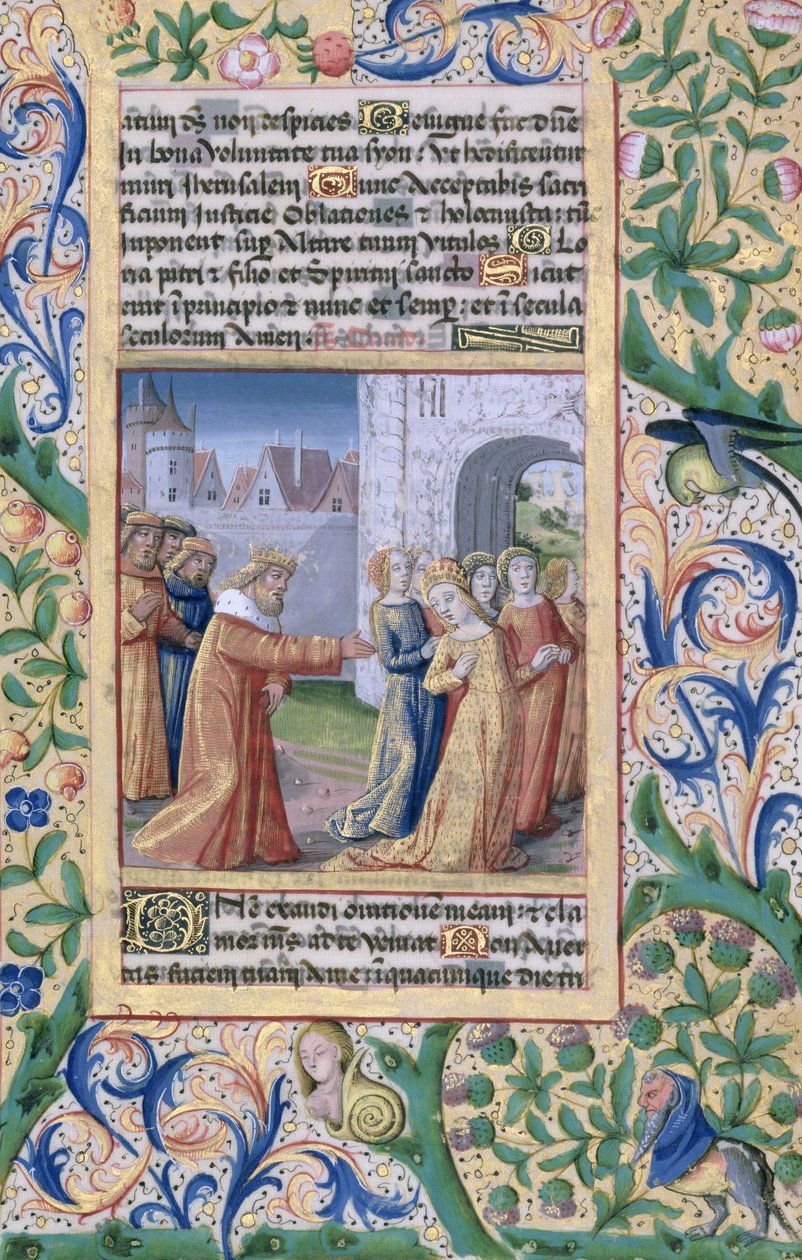 atum ds non despicies Benigne fac dne
In bona voluntate tua syon : Vt hedificentur
muri Iherusalem Tunc Acceptabis sacri
ficium Iusticie Oblationes & holocausta: tūc
Inponent sup Altare tuum Vitulos GLo
ria patri & filio et Spiritui sancto Sicut
erat ī principio & nunc et semp : et ī secula
seculorum Amen :
DNē exaudi orationem meam : & cla
mor mˢ ad te Veniat Non Auer
tas faciem tuam A me : ī quacumque die tri